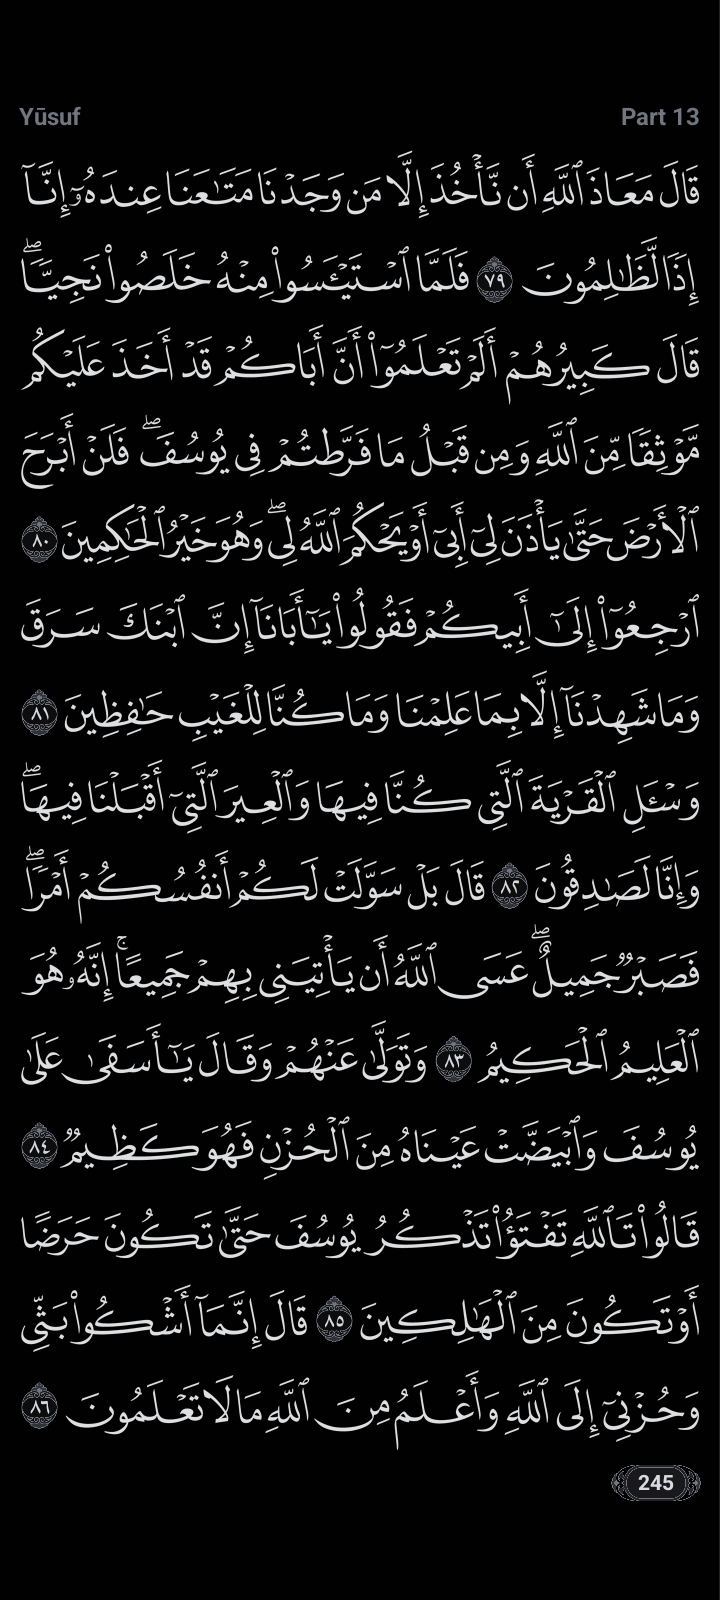 Yūsuf
Part 13
قَالَ مَعَاذَ ٱللَّهِ أَن نَّأۡخُذَ إِلَّا مَن وَجَدۡنَا مَتَٰعَنَا عِندَهُۥٓ إِنَّآ
إِذٗا لَّظَٰلِمُونَ ٧٩ فَلَمَّا ٱسۡتَيۡـَٔسُواْ مِنۡهُ خَلَصُواْ نَجِيّٗاۖ
قَالَ كَبِيرُهُمۡ أَلَمۡ تَعۡلَمُوٓاْ أَنَّ أَبَاكُمۡ قَدۡ أَخَذَ عَلَيۡكُم
مَّوۡثِقٗا مِّنَ ٱللَّهِ وَمِن قَبۡلُ مَا فَرَّطتُمۡ فِي يُوسُفَۖ فَلَنۡ أَبۡرَحَ
ٱلۡأَرۡضَ حَتَّىٰ يَأۡذَنَ لِيٓ أَبِيٓ أَوۡ يَحۡكُمَ ٱللَّهُ لِيۖ وَهُوَ خَيۡرُ ٱلۡحَٰكِمِينَ ٨٠
ٱرۡجِعُوٓاْ إِلَىٰٓ أَبِيكُمۡ فَقُولُواْ يَٰٓأَبَانَآ إِنَّ ٱبۡنَكَ سَرَقَ
وَمَا شَهِدۡنَآ إِلَّا بِمَا عَلِمۡنَا وَمَا كُنَّا لِلۡغَيۡبِ حَٰفِظِينَ ٨١
وَسۡـَٔلِ ٱلۡقَرۡيَةَ ٱلَّتِي كُنَّا فِيهَا وَٱلۡعِيرَ ٱلَّتِيٓ أَقۡبَلۡنَا فِيهَاۖ
وَإِنَّا لَصَٰدِقُونَ ٨٢ قَالَ بَلۡ سَوَّلَتۡ لَكُمۡ أَنفُسُكُمۡ أَمۡرٗاۖ
فَصَبۡرٞ جَمِيلٌۖ عَسَى ٱللَّهُ أَن يَأۡتِيَنِي بِهِمۡ جَمِيعًاۚ إِنَّهُۥ هُوَ
ٱلۡعَلِيمُ ٱلۡحَكِيمُ ٨٣ وَتَوَلَّىٰ عَنۡهُمۡ وَقَالَ يَٰٓأَسَفَىٰ عَلَىٰ
يُوسُفَ وَٱبۡيَضَّتۡ عَيۡنَاهُ مِنَ ٱلۡحُزۡنِ فَهُوَ كَظِيمٞ ٨٤
قَالُواْ تَٱللَّهِ تَفۡتَؤُاْ تَذۡكُرُ يُوسُفَ حَتَّىٰ تَكُونَ حَرَضًا
أَوۡ تَكُونَ مِنَ ٱلۡهَٰلِكِينَ ٨٥ قَالَ إِنَّمَآ أَشۡكُواْ بَثِّي
وَحُزۡنِيٓ إِلَى ٱللَّهِ وَأَعۡلَمُ مِنَ ٱللَّهِ مَا لَا تَعۡلَمُونَ ٨٦
245